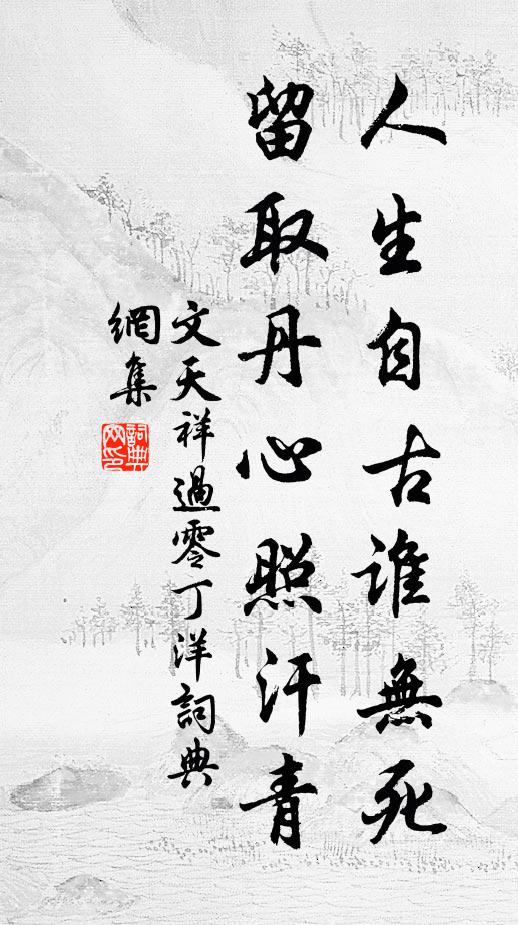 人生自古誰無死
留取丹心照汗青
文天祥過零丁洋詞典
網集
詞典
网印